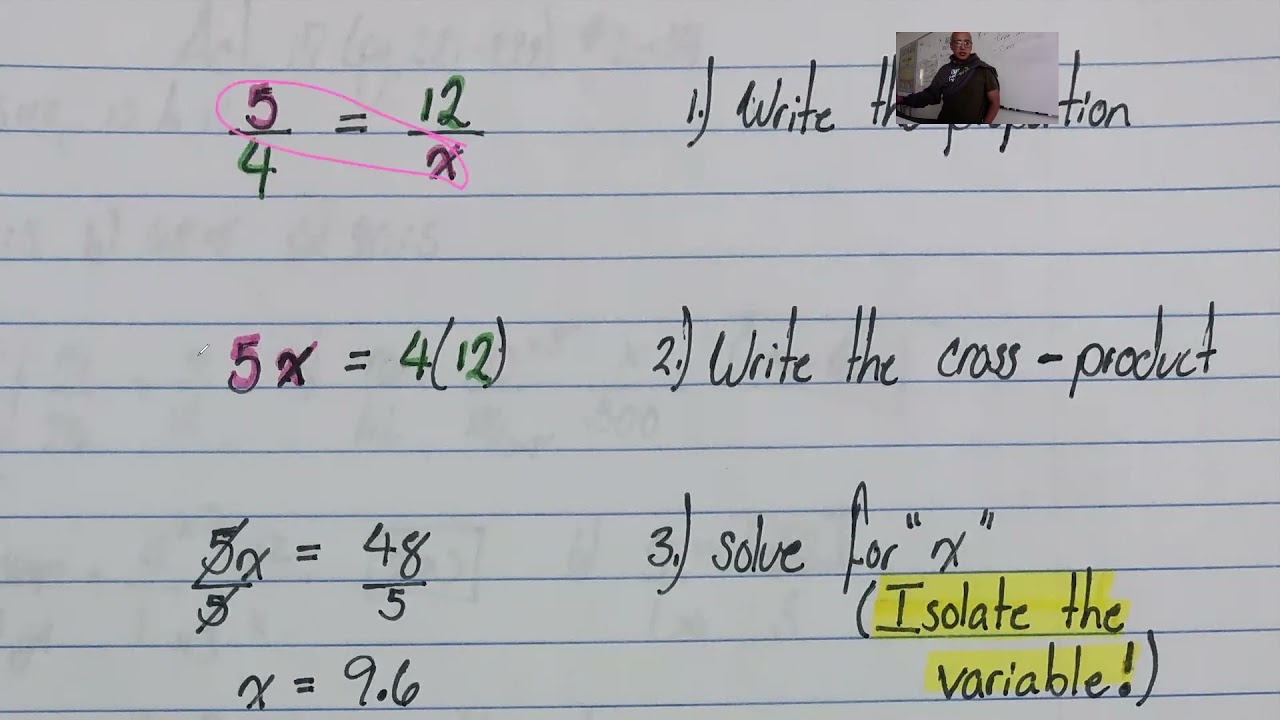 5/4 = 12/x
1.) Write
5x = 4(12)
2.) Write the cross-product
5x/5 = 48/5
3.) solve for "x"
(Isolate the
variable!)
x = 9.6